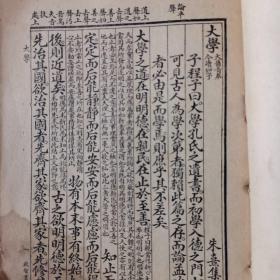 大學 大舊音泰今讀如字 朱熹集
子程子曰大學孔氏之遺書而初學入德之門
可見古人為學次第者獨賴此篇之存而論孟
者必由是而學焉則庶乎其不差矣
大學之道在明明德在親民在止於至善
知止
定定而后能靜靜而后能安安而后能慮慮而后能
物有本末事有終始
後則近道矣 古之欲明明德於
先治其國欲治其國者先齊其家欲齊其家者先修
論平聲
大學